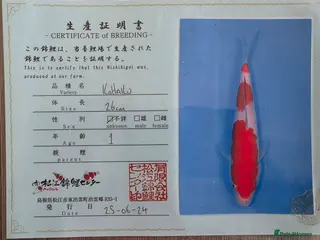 生産証明書
- CERTIFICATE of BREEDING -
この錦鯉は、当養鯉場で生産された
錦鯉であることを証明する。
This is to certify that this Nishikigoi was,
produced at our farm.
品種 Variety KOHAKU
体長 Size 26cm
性別 Sex 不詳 unknown 雄 male 雌 female
年齢 Age 1
親鯉 parent
松江錦鯉センター
島根県松江市東出雲町出雲郷
発行日 Date 25-06-24